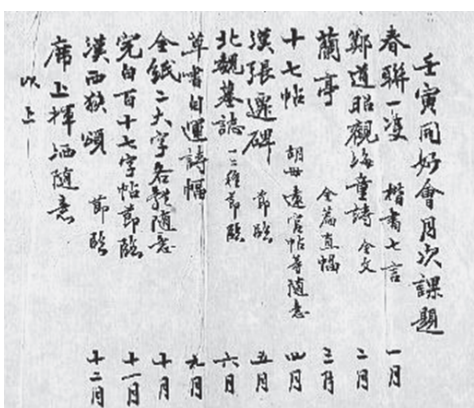 壬寅同好會月次課題
春聯一雙 楷書七言 一月
鄭道昭觀海童詩 全文 二月
蘭亭 全篇直幅 三月
十七帖 胡母遠宦帖等隨意 四月
漢張遷碑 節臨 五月
北魏墓誌 一二種節臨 六月
草書自運詩幅 九月
全紙二大字各體隨意 十月
完白百十七字帖節臨 十一月
漢西狹頌 節臨 十二月
席上揮洒隨意
以上